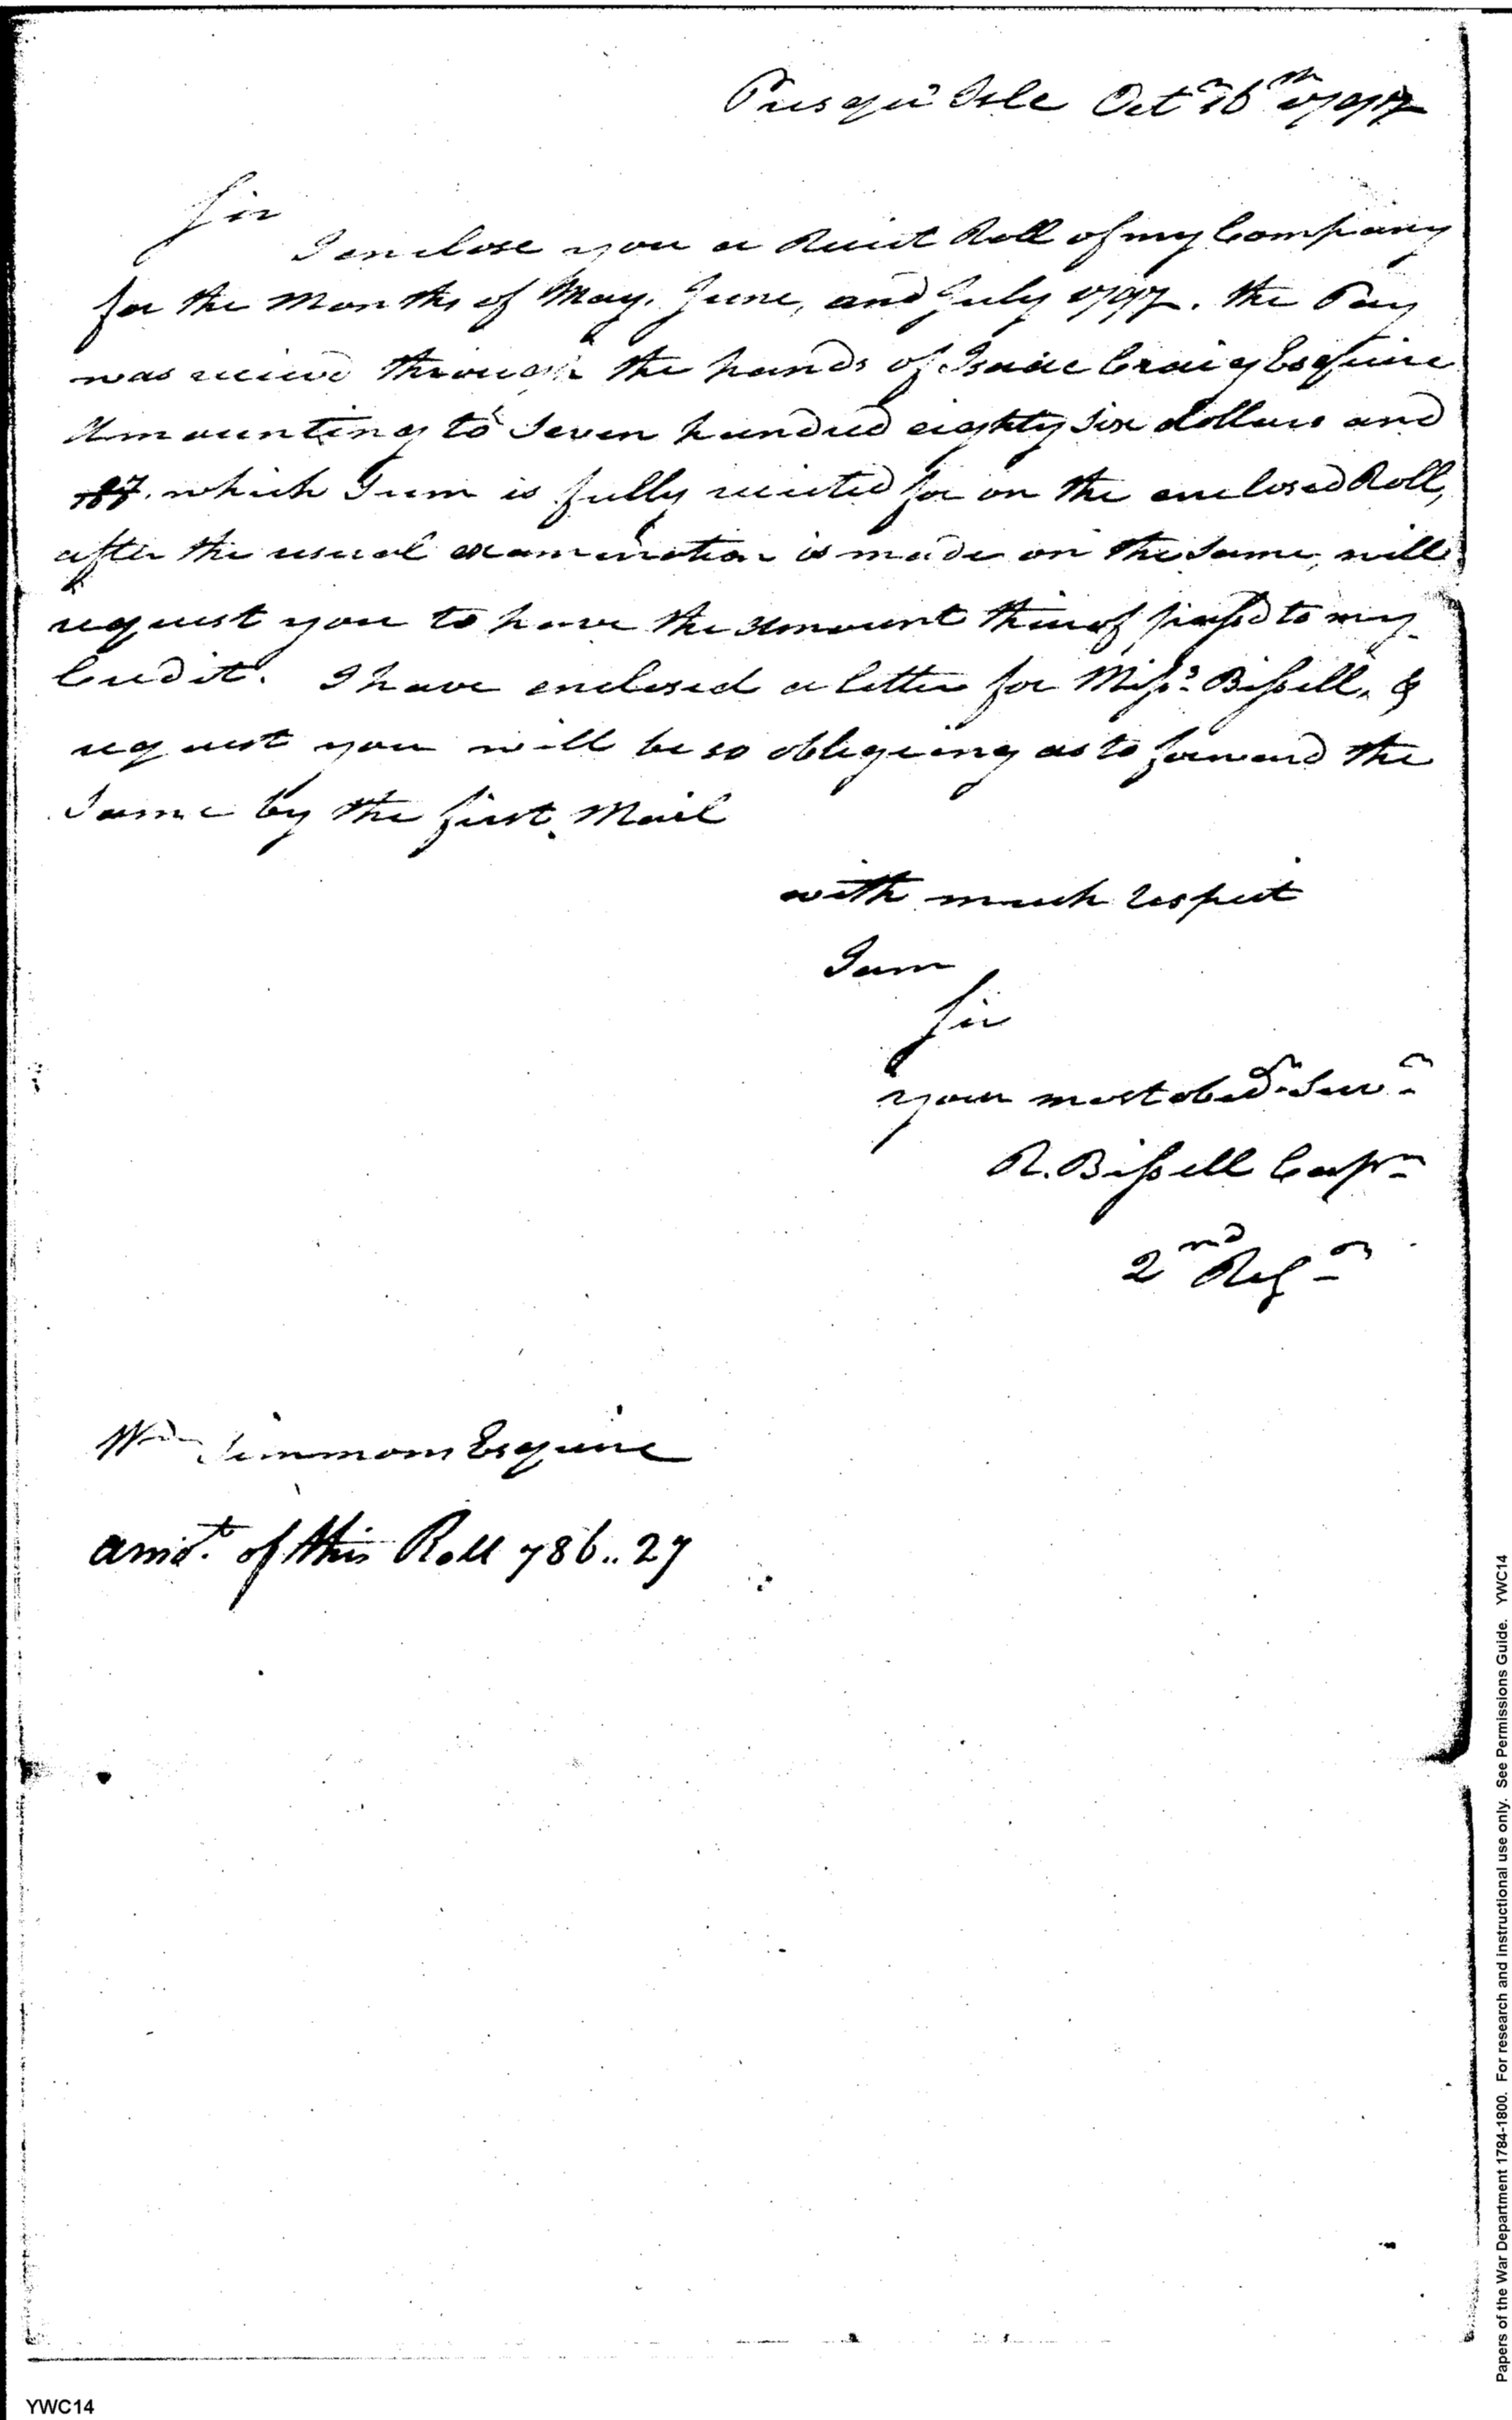 Presqu' Isle Octr 16th 1797
Sir
I enclose you a Reciet Roll of my Company
for the Months of May, June, and July 1797. the Pay
was recievd through the hands of Isaac Craig Esquire
Amounting to Seven hundred eighty Six dollars and
which Sum is fully recieted for on the enclosed Roll,
after the usual examination is made on the Same, will
request you to have the Amount thereof passd to my
Credit. I have enclosed a letter for Missrs Bissell, &
request you will be so obligeing as to forward the
Same by the first Mail
with much respect
I am
Sir
your most obedt Servt
R. Bissell Captn
2nd Regt
Wm Simmons Esquire
amot. of this Roll 786..27
Papers of the War Department 1784-1800. For research and instructional use only. See Permissions Guide. YWC14
YWC14